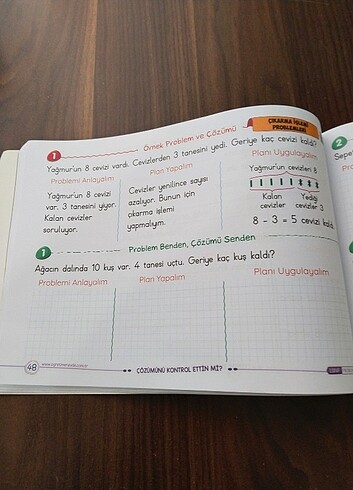 ÇIKARMA İŞLEMİ
PROBLEMLERİ
1
Örnek Problem ve Çözümü
Yağmur'un 8 cevizi vardı. Cevizlerden 3 tanesini yedi. Geriye kaç cevizi kaldı?
Problemi Anlayalım
Plan Yapalım
Planı Uygulayalım
Yağmur'un 8 cevizi
var. 3 tanesini yiyor.
Kalan cevizler
soruluyor.
Cevizler yenilince sayısı
azalıyor. Bunun için
çıkarma işlemi
yapmalıyım.
Yağmur'un cevizleri 8
Kalan
cevizler
Yediği
cevizler 3
8 - 3 = 5 cevizi kaldı.
1
Problem Benden, Çözümü Senden
Ağacın dalında 10 kuş var. 4 tanesi uçtu. Geriye kaç kuş kaldı?
Problemi Anlayalım
Plan Yapalım
Planı Uygulayalım
48
ÇÖZÜMÜNÜ KONTROL ETTİN Mİ?
2